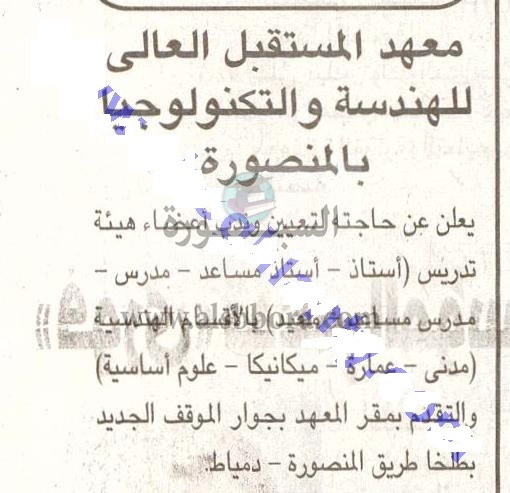 معهد المستقبل العالى
للهندسة والتكنولوجيا
بالمنصورة
يعلن عن حاجته لتعيين وندب أعضاء هيئة
تدريس (أستاذ - أستاذ مساعد - مدرس -
مدرس مساعد - معيد) بالأقسام الهندسية
(مدنى - عمارة - ميكانيكا - علوم أساسية)
والتقدم بمقر المعهد بجوار الموقف الجديد
بطلخا طريق المنصورة - دمياط.
السبورة